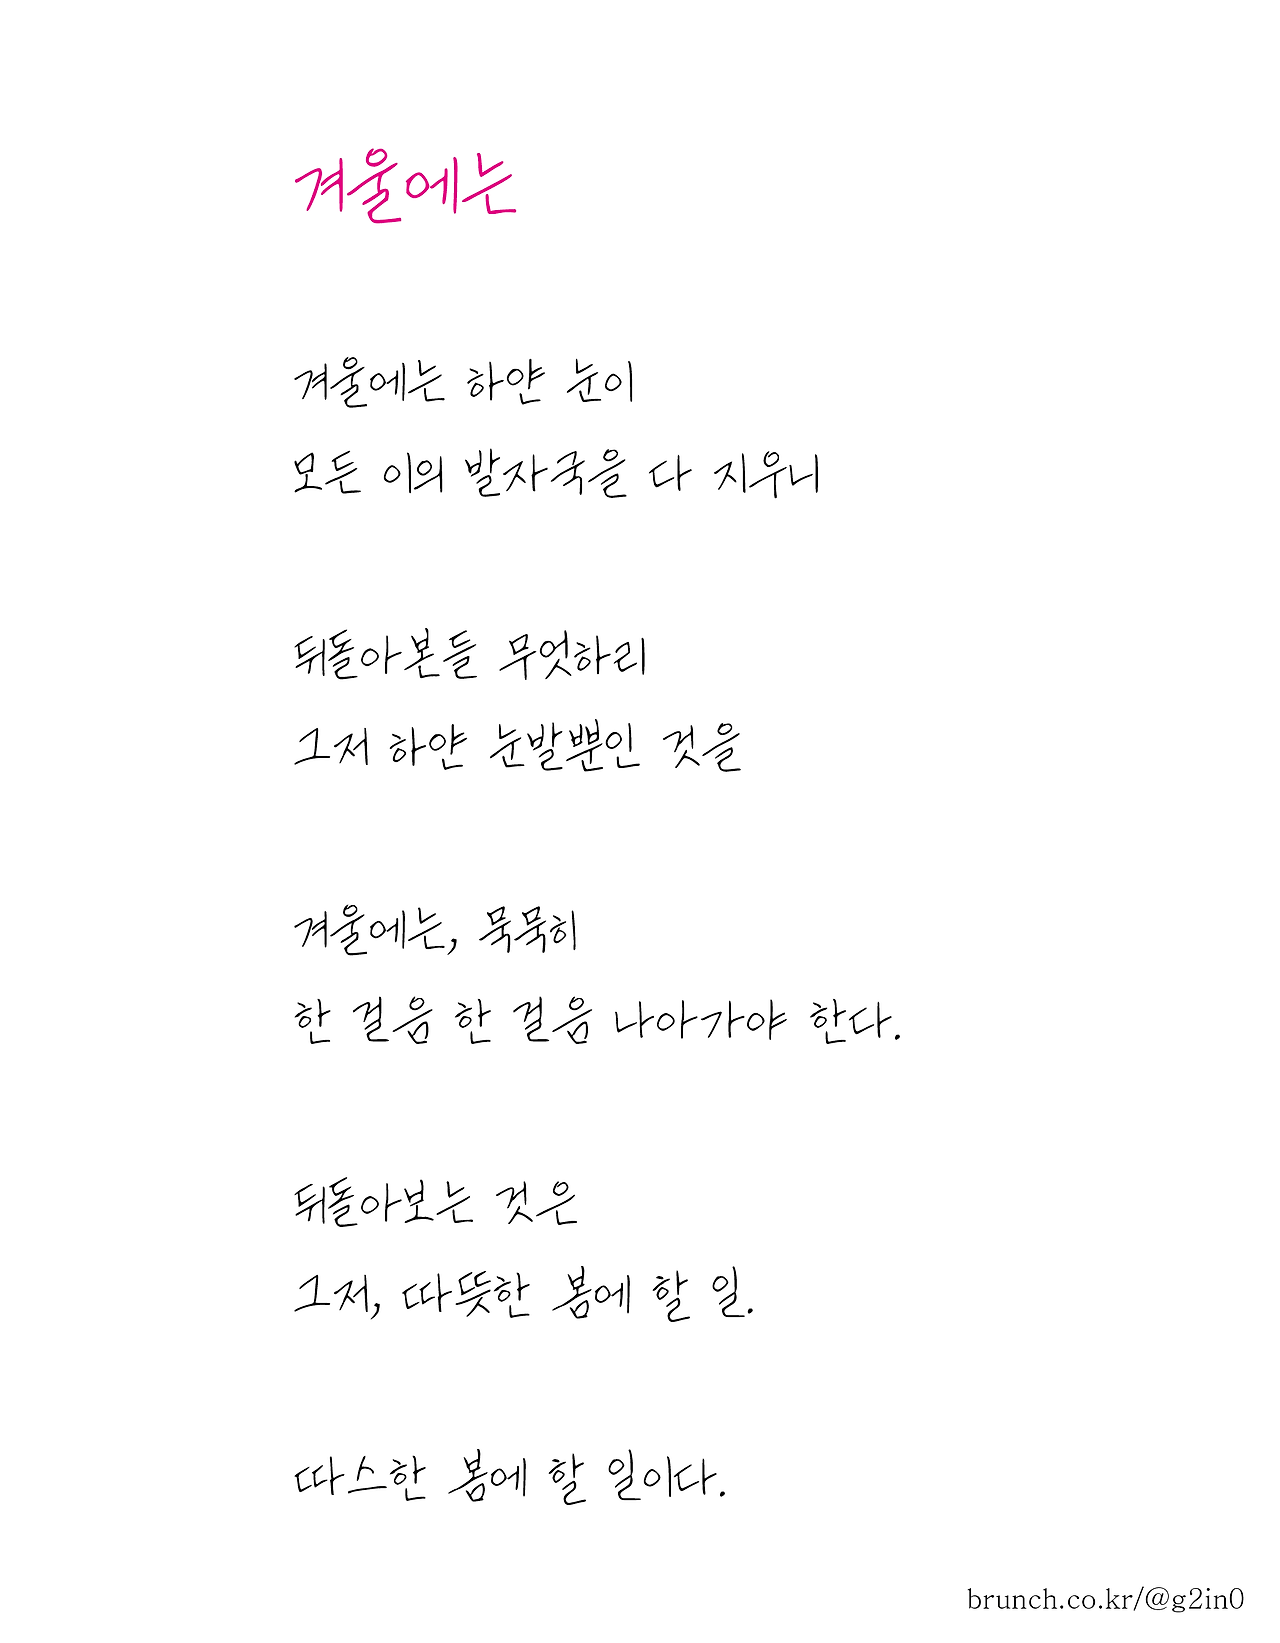 겨울에는
겨울에는 하얀 눈이
모든 이의 발자국을 다 지우니
뒤돌아본들 무엇하리
그저 하얀 눈발뿐인 것을
겨울에는, 묵묵히
한 걸음 한 걸음 나아가야 한다.
뒤돌아보는 것은
그저, 따뜻한 봄에 할 일.
따스한 봄에 할 일이다.
brunch.co.kr/@g2in0